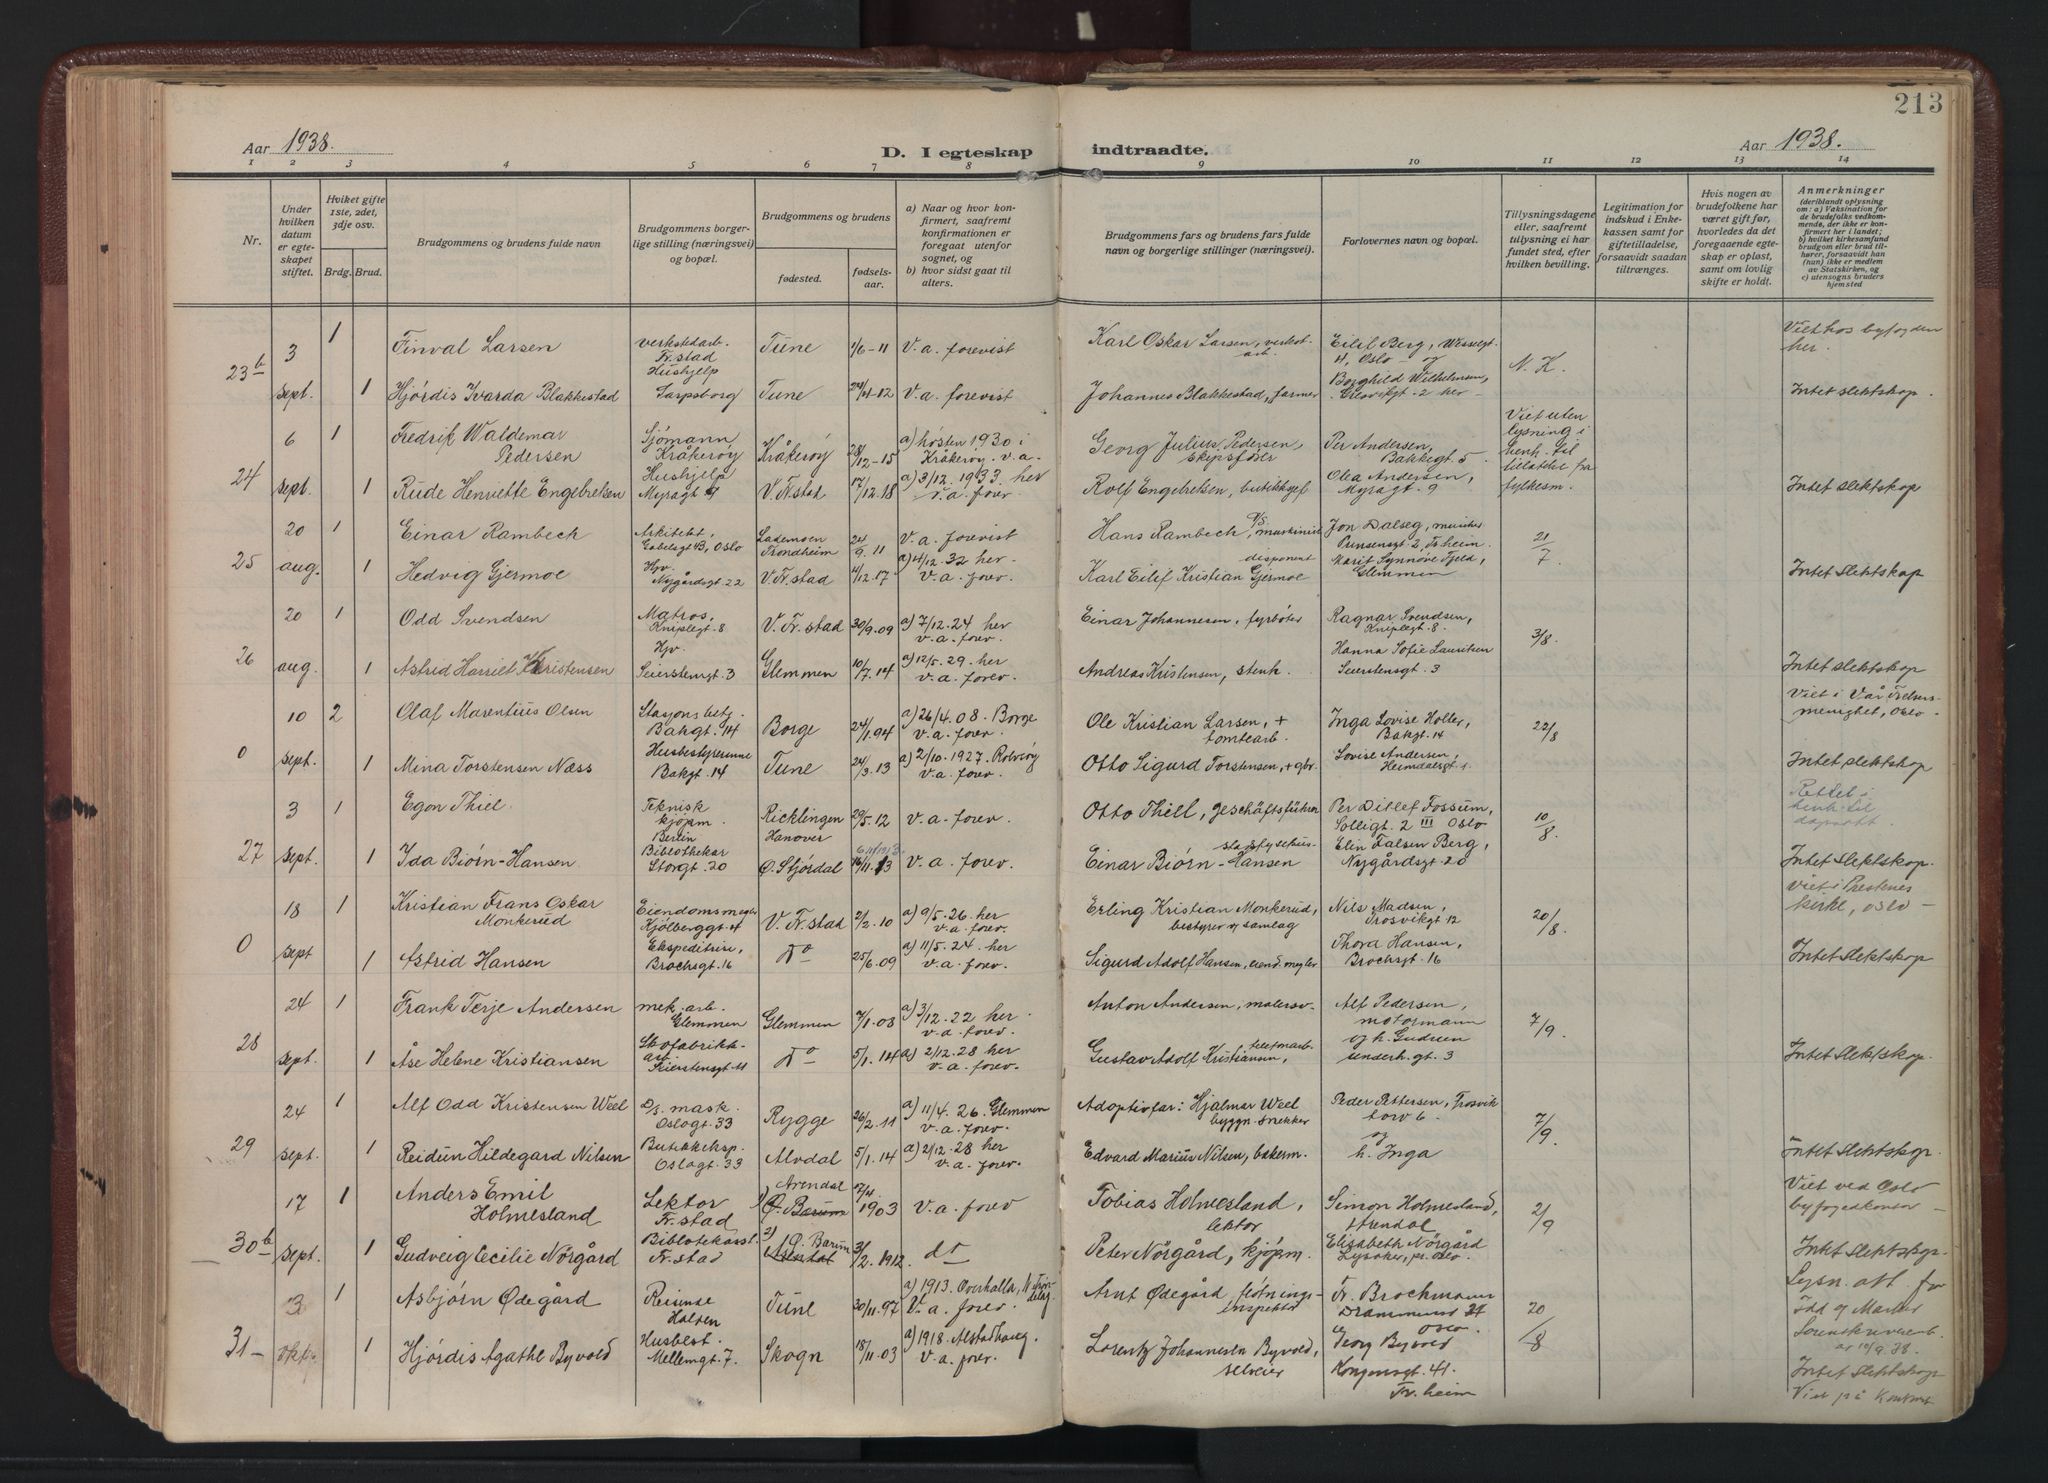 213
Aar 1938.
D. I egteskap indtraadte.
Aar 1938.
1 2 3 4 5 6 7 8 9 10 11 12 13 14
Nr.
Under hvilken datum er egteskapet stiftet.
Hviket gifte 1ste, 2det, 3dje osv.
Brdg. Brud.
Brudgommens og brudens fulde navn
Brudgommens borgerlige stilling (næringsvei) og bopæl.
Brudgommens og brudens
fødested.
fødselsaar.
a) Naar og hvor konfirmert, saafremt konfirmationen er foregaat utenfor sognet, og
b) hvor sidst gaat til alters.
Brudgommens fars og brudens fars fulde navn og borgerlige stillinger (næringsvei).
Forlovernes navn og bopæl.
Tillysningsdagene eller, saafremt tillysning ei har fundet sted, efter hvilken bevilling.
Legitimation for indskud i Enkekassen samt for giftetilladelse, forsaavidt saadan tiltrænges.
Hvis nogen av brudefolkene har været gift før, hvorledes da det foregaaende egteskap er opløst, samt om lovlig skifte er holdt.
Anmerkninger
(deriblandt oplysning om: a) Vaksination for de brudefolks vedkommende, der ikke er konfirmert her i landet; b) hvilket kirkesamfund brudgom eller brud tilhører, forsaavidt han (hun) ikke er medlem av Statskirken, og c) utensogns bruders hjemsted
23b 3 sept. 1 Finval Larsen verkstedarb. Fr.stad Tune 1/6-11 V.a. forevist Karl Oskar Larsen, verkst. arb. Eilif Berg, Wessegt. 4, Oslo og N.K. Viet hos byfogden her.
1 Hjørdis Ivarda Blakkestad Hushjelp Sarpsborg Tune 24/4-12 V.a. forevist Johannes Blakkestad, farmer Borghild Wilhelmsen, Glesvikgt. 2 her Intet slektskap.
24 6 sept. 1 Fredrik Waldemar Pedersen Sjømann, Kråkerøy Kråkerøy 28/12-15 a) høsten 1930 i Kråkerøy. v.a. Georg Julius Pedersen, Skipsfører Per Andersen, Bakkegt. 5 Viet uten lysning i henh. til tillatelse fra fylkesm.
1 Rude Henriette Engebretsen Hushjelp Myragt 9 V. Fr.stad 17/12.18 a) 3/12. 1933 her v.a. forev. Rolf Engebretsen, butikksjef Olea Andersen, Myragt. 9 Intet slektskap
25 20 aug. 1 Einar Rambech Arkitekt, Gabelsgt 4B, Oslo Lademoen Trondheim 24/9.11 V.a. forevist Hans Rambech, maskinist Jon Dalseg, musiker Prinsensgt. 2, Tr.heim. 21/7
1 Hedvig Gjermoe Hjv. Nygårdsgt 22 V. Fr.stad 4/12.17 a) 4/12. 32 her v.a. forev. disponent Karl Eilif Kristian Gjermoe Marit Synnøve Fjeld, Glemmen Intet Slektskap
26 20 aug. 1 Odd Svendsen Matros, Kniplegt. 8 V. Fr.stad 30/9.09 a) 7/12. 24 her v.a. forev. Einar Johannesen, fyrbøter Ragnar Svendsen, Kniplegt. 8 3/8.
1 Astrid Harriet Kristensen Hjv. Seierstensgt. 3 Glemmen 10/7.14 a) 12/5. 29. her v.a. forev. Andreas Kristensen, stenh. Hanna Sofie Lauritsen Seierstensgt. 3 Intet slektskap
0 10 sept. 2 Olaf Marentius Olsen Stasjonsbetj. Bakgt. 14 Borge 24/1.94 a) 26/4. 08. Borge v.a. forev. Ole Kristian Larsen, + tomtearb. Inga Lovise Holler, Bakgt. 14 22/8 Viet i Vår Frelsers menighet, Oslo.
1 Mina Torstensen Næss Husbestyrerinne Bakgt. 14 Tune 24/3.13 a) 2/10. 1927. Rolvsøy v.a. forev. Otto Sigurd Torstensen, + gbr. Lovise Andersen, Heimdalsgt. Intet slektskap
27 3 sept. 1 Egon Thiel. Teknisk kjøpm. Berlin Ricklingen Hanover 29/5.12 V.a. forev. Otto Thiell, geschäftsführer Per Ditlef Fossum, Solligt. 2 III Oslo 10/8.
1 Ida Biørn-Hansen Bibliothekar Storgt. 20 Ø. Stjørdal 16/11.13 V.a. forev. Einar Biørn-Hansen Elin Falsen Berg, Nygårdsgt. 20 Intet slektskap.
0 18 sept 1 Kristian Frans Oskar Monkerud Eiendomsmegler Kjølberggt. 4 V. Fr.stad 2/2.10 a) 9/5. 26. her v.a. forev. Erling Kristian Monkerud, bestyrer og samlag Nils Madsen, Trosvikgt. 12 20/8. viet i Prestenes kirke, Oslo —
1 Astrid Hansen Ekspeditrise, Brochsgt. 16 Do 25/6.09 a) 11/5. 24. her v.a. forev. Sigurd Adolf Hansen, eiend. megler Thora Hansen, Brochsgt. 16 Intet Slektskap
28 24 sept. 1 Frank Terje Andersen mek. arb. Glemmen Glemmen 7/1.03 a) 3/12. 22 her v.a. forev. Anton Andersen, malersv. Alf Pedersen, motormann og h. Gudrun underh.gt. 3 7/9.
1 Åse Helene Kristiansen Skofabrikkarb. Seierstensgt. 11 Do 5/1.14 a) 2/12. 28 her v.a. forev. Gustav Adolf Kristiansen, telefonarb. Intet slektskap.
29 24 sept. 1 Alf Odd Kristensen Weel D/s. mask. Oslogt. 33 Rygge 26/2.11 a) 11/4. 26. Glemmen v.a. forev. Adoptivfar: Hjalmar Weel byggn. snekker Peder Pettersen, Trosvik torv 6 og h. Inga 7/9.
1 Reidun Hildegard Nilsen Butikkeksp. Oslogt. 33 Alvdal 5/1.14 a) 2/12. 28 her v.a. forev. Edvard Marius Nilsen, bakerm. Intet slektskap.
30b 17 sept. 1 Anders Emil Holmesland Lektor Fr.stad 1) Arendal Ø. Bærum 7/4. 1903 V.a. forev Tobias Holmesland, lektor Simon Holmesland, Arendal 2/9 Viet ved Oslo byfogedkontor —
1 Gudveig Cecilie Nörgård Bibliotekarst. Fr.stad 2) Ø. Bærum Arendal 3/2. 1912. do Peter Nörgård, kjøpm. Elisabeth Nörgård Lysaker, pr. Oslo Intet Slektskap.
31 3 okt. 1 Asbjørn Ødegård Reisende Halden Tune 30/11.97 a) 1913. Overhalla, N. Trøndelag V.a. forev. Arnt Ødegård, tolningsinspektør Fr. Brochmann Drammensv 21 Oslo. 20/8 Lysn. att. fra Idd og Marker Sorenskriveremb. av 10/9.38.
1 Hjørdis Agathe Byvold Husbest. Mellemgt. 7. Skogn 18/11.03 a) 1918. Alstadhaug. V.a. forev. Lorentz Johannesen Byvold, selveier Georg Byvold Kongensgt. 41. Tr.heim Intet slektskap Viet på kontoret